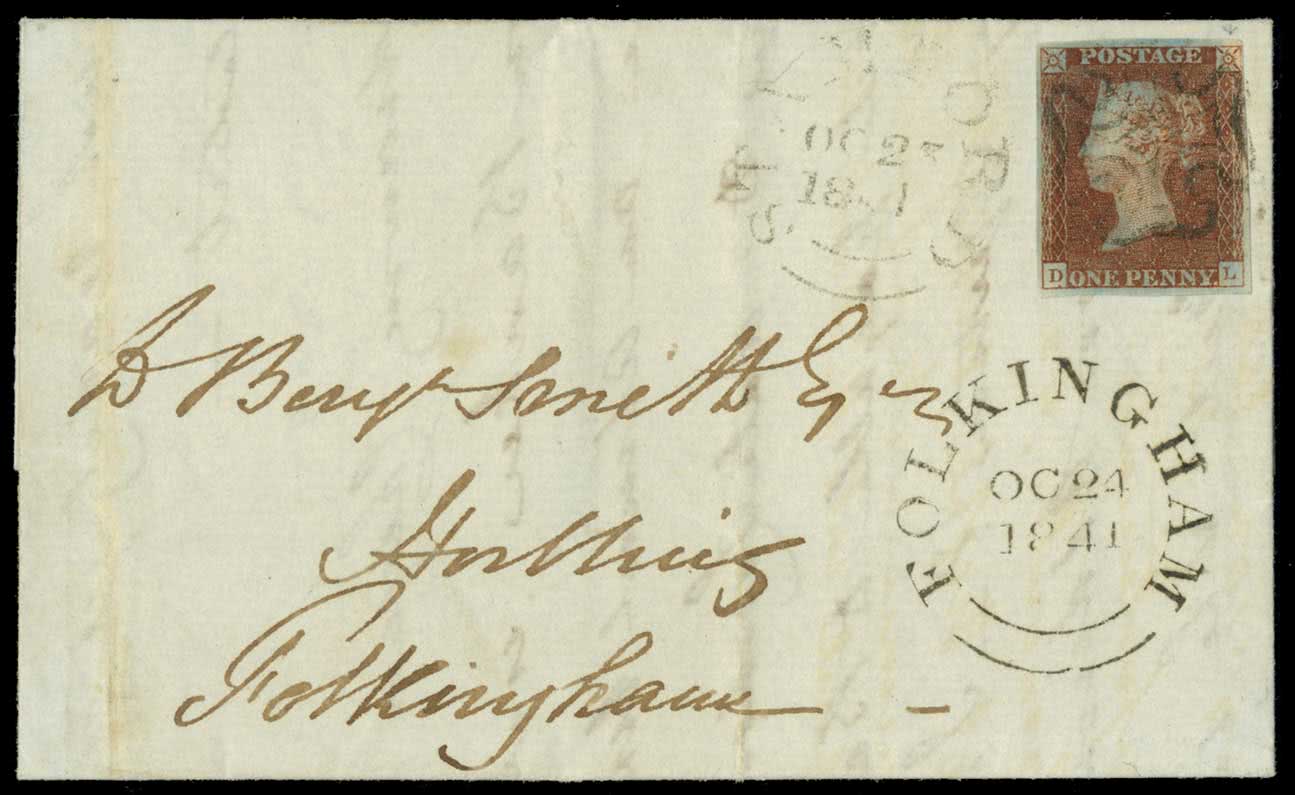 POSTAGE
D ONE PENNY. L
STAMFORD
OC 23
1841
FOLKINGHAM
OC 24
1841
Benjn Smith Esqr
Horbling
Folkingham